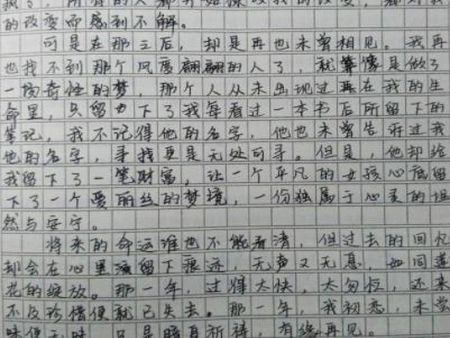 的改变而感到不解。
可是在那之后，却是再也未曾相见。我再
也找不到那个风度翩翩的人了，就算像是做了
一场奇怪的梦，那个人从未出现过在我的生
命里，只留下了我每看过一本书后所留下的
笔记，我不记得他的名字，他也未曾告诉过我
他的名字，寻找更是无处可寻。但是，他却给
我留下了一笔财富，让一个平凡的女孩心底留
下了一个爱丽丝的梦境，一份独属于心灵的坦
然与安宁。
将来的命运谁也不能看清，但过去的回忆
却会在心里深留下痕迹，无声又无息，如同莲
花的绽放。那一年，过得太快，太匆仅，还来
不及珍惜便就已失去。那一年，我初恋，未尝
味便无味，只是暗自祈祷，有缘再见。